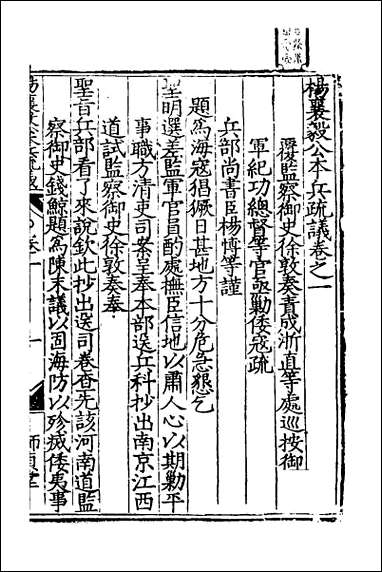 楊襄毅公本兵疏議卷之一
覆監察御史徐敦奏責成浙直等處巡按御
軍紀功總督等官亟勦倭寇疏
兵部尚書臣楊博等謹
題為海寇猖獗日甚地方十分危急懇乞
聖明選差監軍官員酌處撫臣信地以肅人心以期勦平
事職方清吏司案呈奉本部送兵科抄出南京江西
道試監察御史徐敦奏奉
聖旨兵部看了來說欽此抄出送司卷查先該河南道監
察御史錢鯨題為陳末議以固海防以殄滅倭夷事
師貞堂